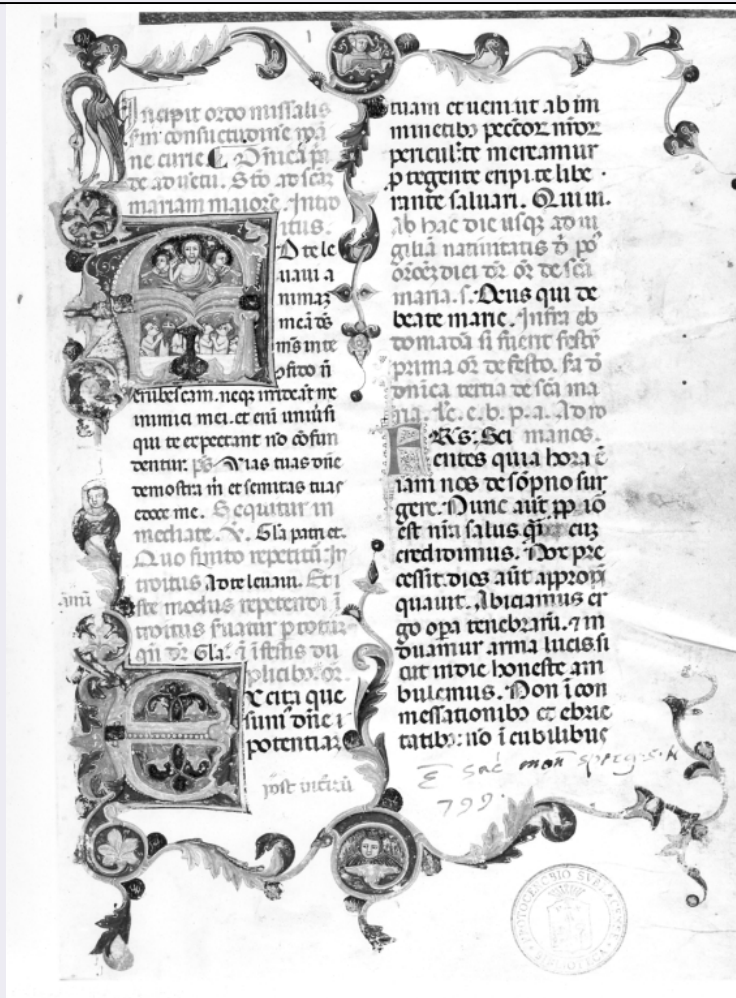 Incipit ordo missalis
scdm consuetudinē roma
ne curie. Dn̄ica p̄
de aduētu. Stō ad scāz
mariam maiorē. Intro
itus.
D te le
uaui a
nimaz
meā ds̄
ms̄ in te
ꝯfido nō
erubescam. neqꝫ irrideāt me
inimici mei. et eni uniūsi
qui te expectant nō cōfun
dentur. ps̄. Vias tuas dn̄e
demostra m̄ et semitas tuas
edoce me. Sequitur in
mediate. ℣. Gl̄a patri et.
Quo finito repetitū In
troitus Ad te leuaui. Et i
ste modus repetendi ī
troitus seruatur p totū
qn̄ dr̄ Gl̄a. ī festis du
plicibꝫ. or̄.
Excita que
sum̄ dn̄e
potentiaz
post uicesū
tuam et ueni ut ab im
minētibꝫ peccōꝝ nr̄oꝝ
periculis te mereamur
ꝓtegente eripi te libe
rante saluari. Qui ui.
Ab hac die usqꝫ ad ui
giliā natiuitatis dn̄
or̄ dr̄ or̄ de scā
maria. s. Deus qui de
beate marie. Infra eb
domadā si fuerit festū
prima or̄ de festo. sa d
dn̄ica tertia de scā ma
ria. Ad ro
manos.
FRs: Sci
entes quia hora ē
iam nos de sōpno sur
gere. Nunc aūt ꝓpiō
est nr̄a salus qͣ cuz
credidimus. Nox pre
cessit. dies aūt appropī
quauit. Abiciamus er
go oꝑa tenebrarū. ⁊ in
duamur arma lucis. si
cut in die honeste am
bulemus. Non ī com
messationibꝫ et ebrie
tatibꝫ: nō ī cubilibus
E sac mon specus. N
799.